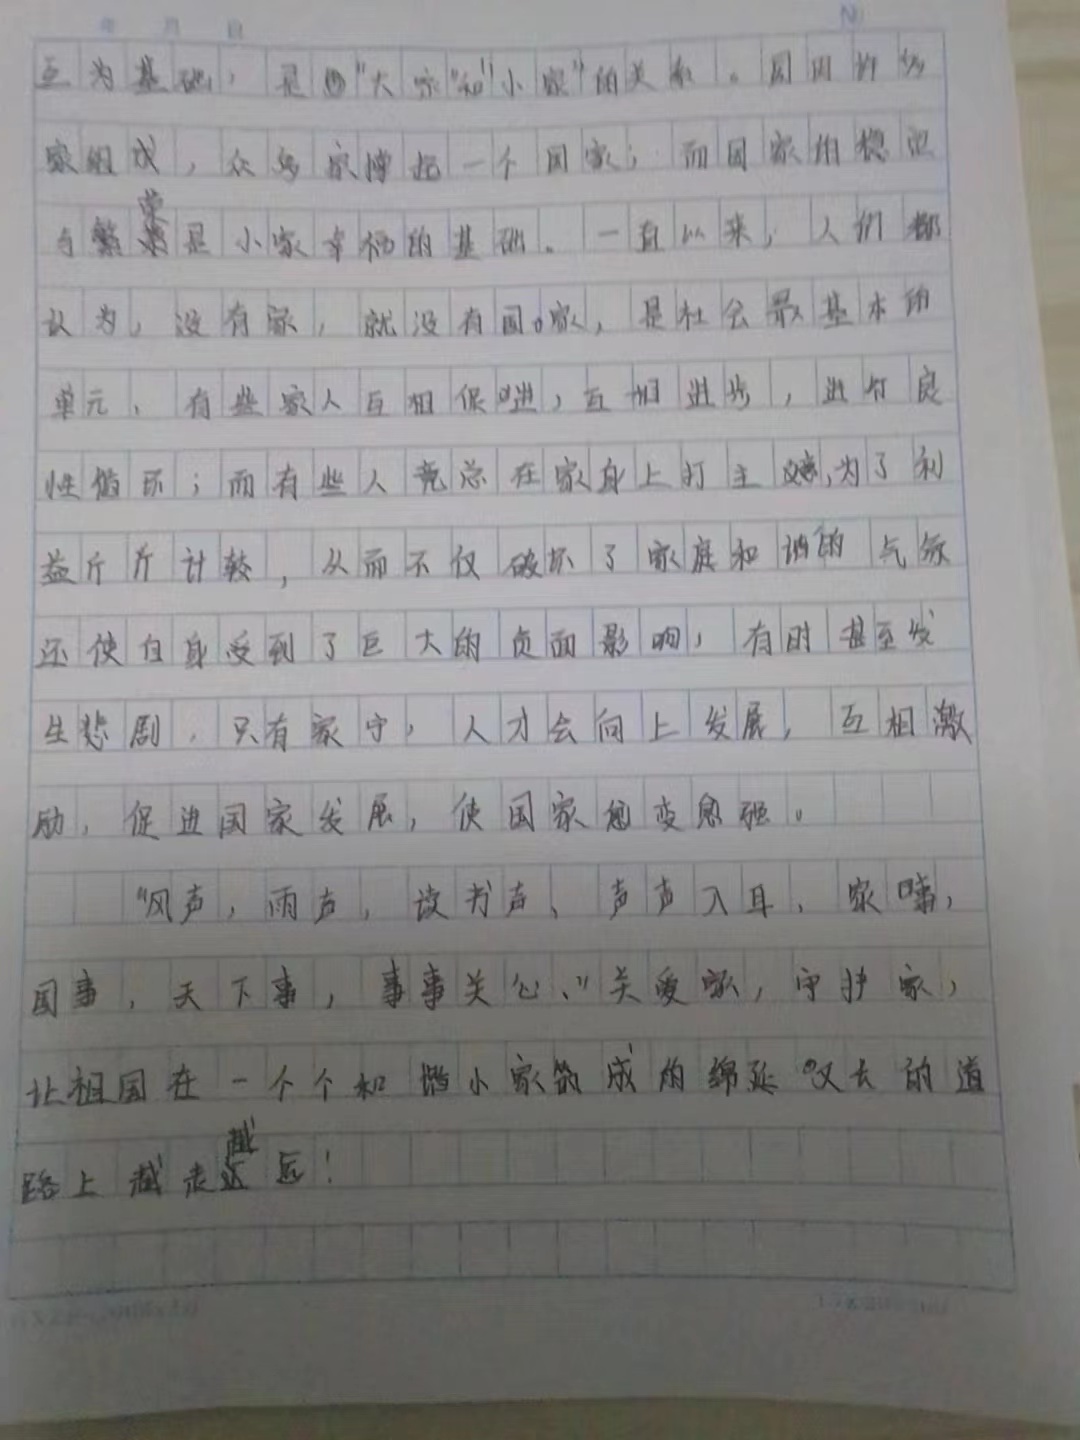 年 月 日 N
互为基础，是"大家"和"小家"的关系。国因许多
家组成，众多家撑起一个国家；而国家的稳定
与繁荣是小家幸福的基础。一直以来，人们都
认为，没有家，就没有国。家，是社会最基本的
单元、有些家人互相促进，互相进步，进行良
性循环；而有些人竟总在家身上打主意，为了利
益斤斤计较，从而不仅破坏了家庭和谐的气氛
还使自身受到了巨大的负面影响，有时甚至发
生悲剧．只有家宁，人才会向上发展，互相激
励，促进国家发展，使国家愈变愈强。
"风声，雨声，读书声、声声入耳、家事，
国事，天下事，事事关心、"关爱家，守护家，
让祖国在一个个和谐小家筑成的绵延又长的道
路上越走越远！